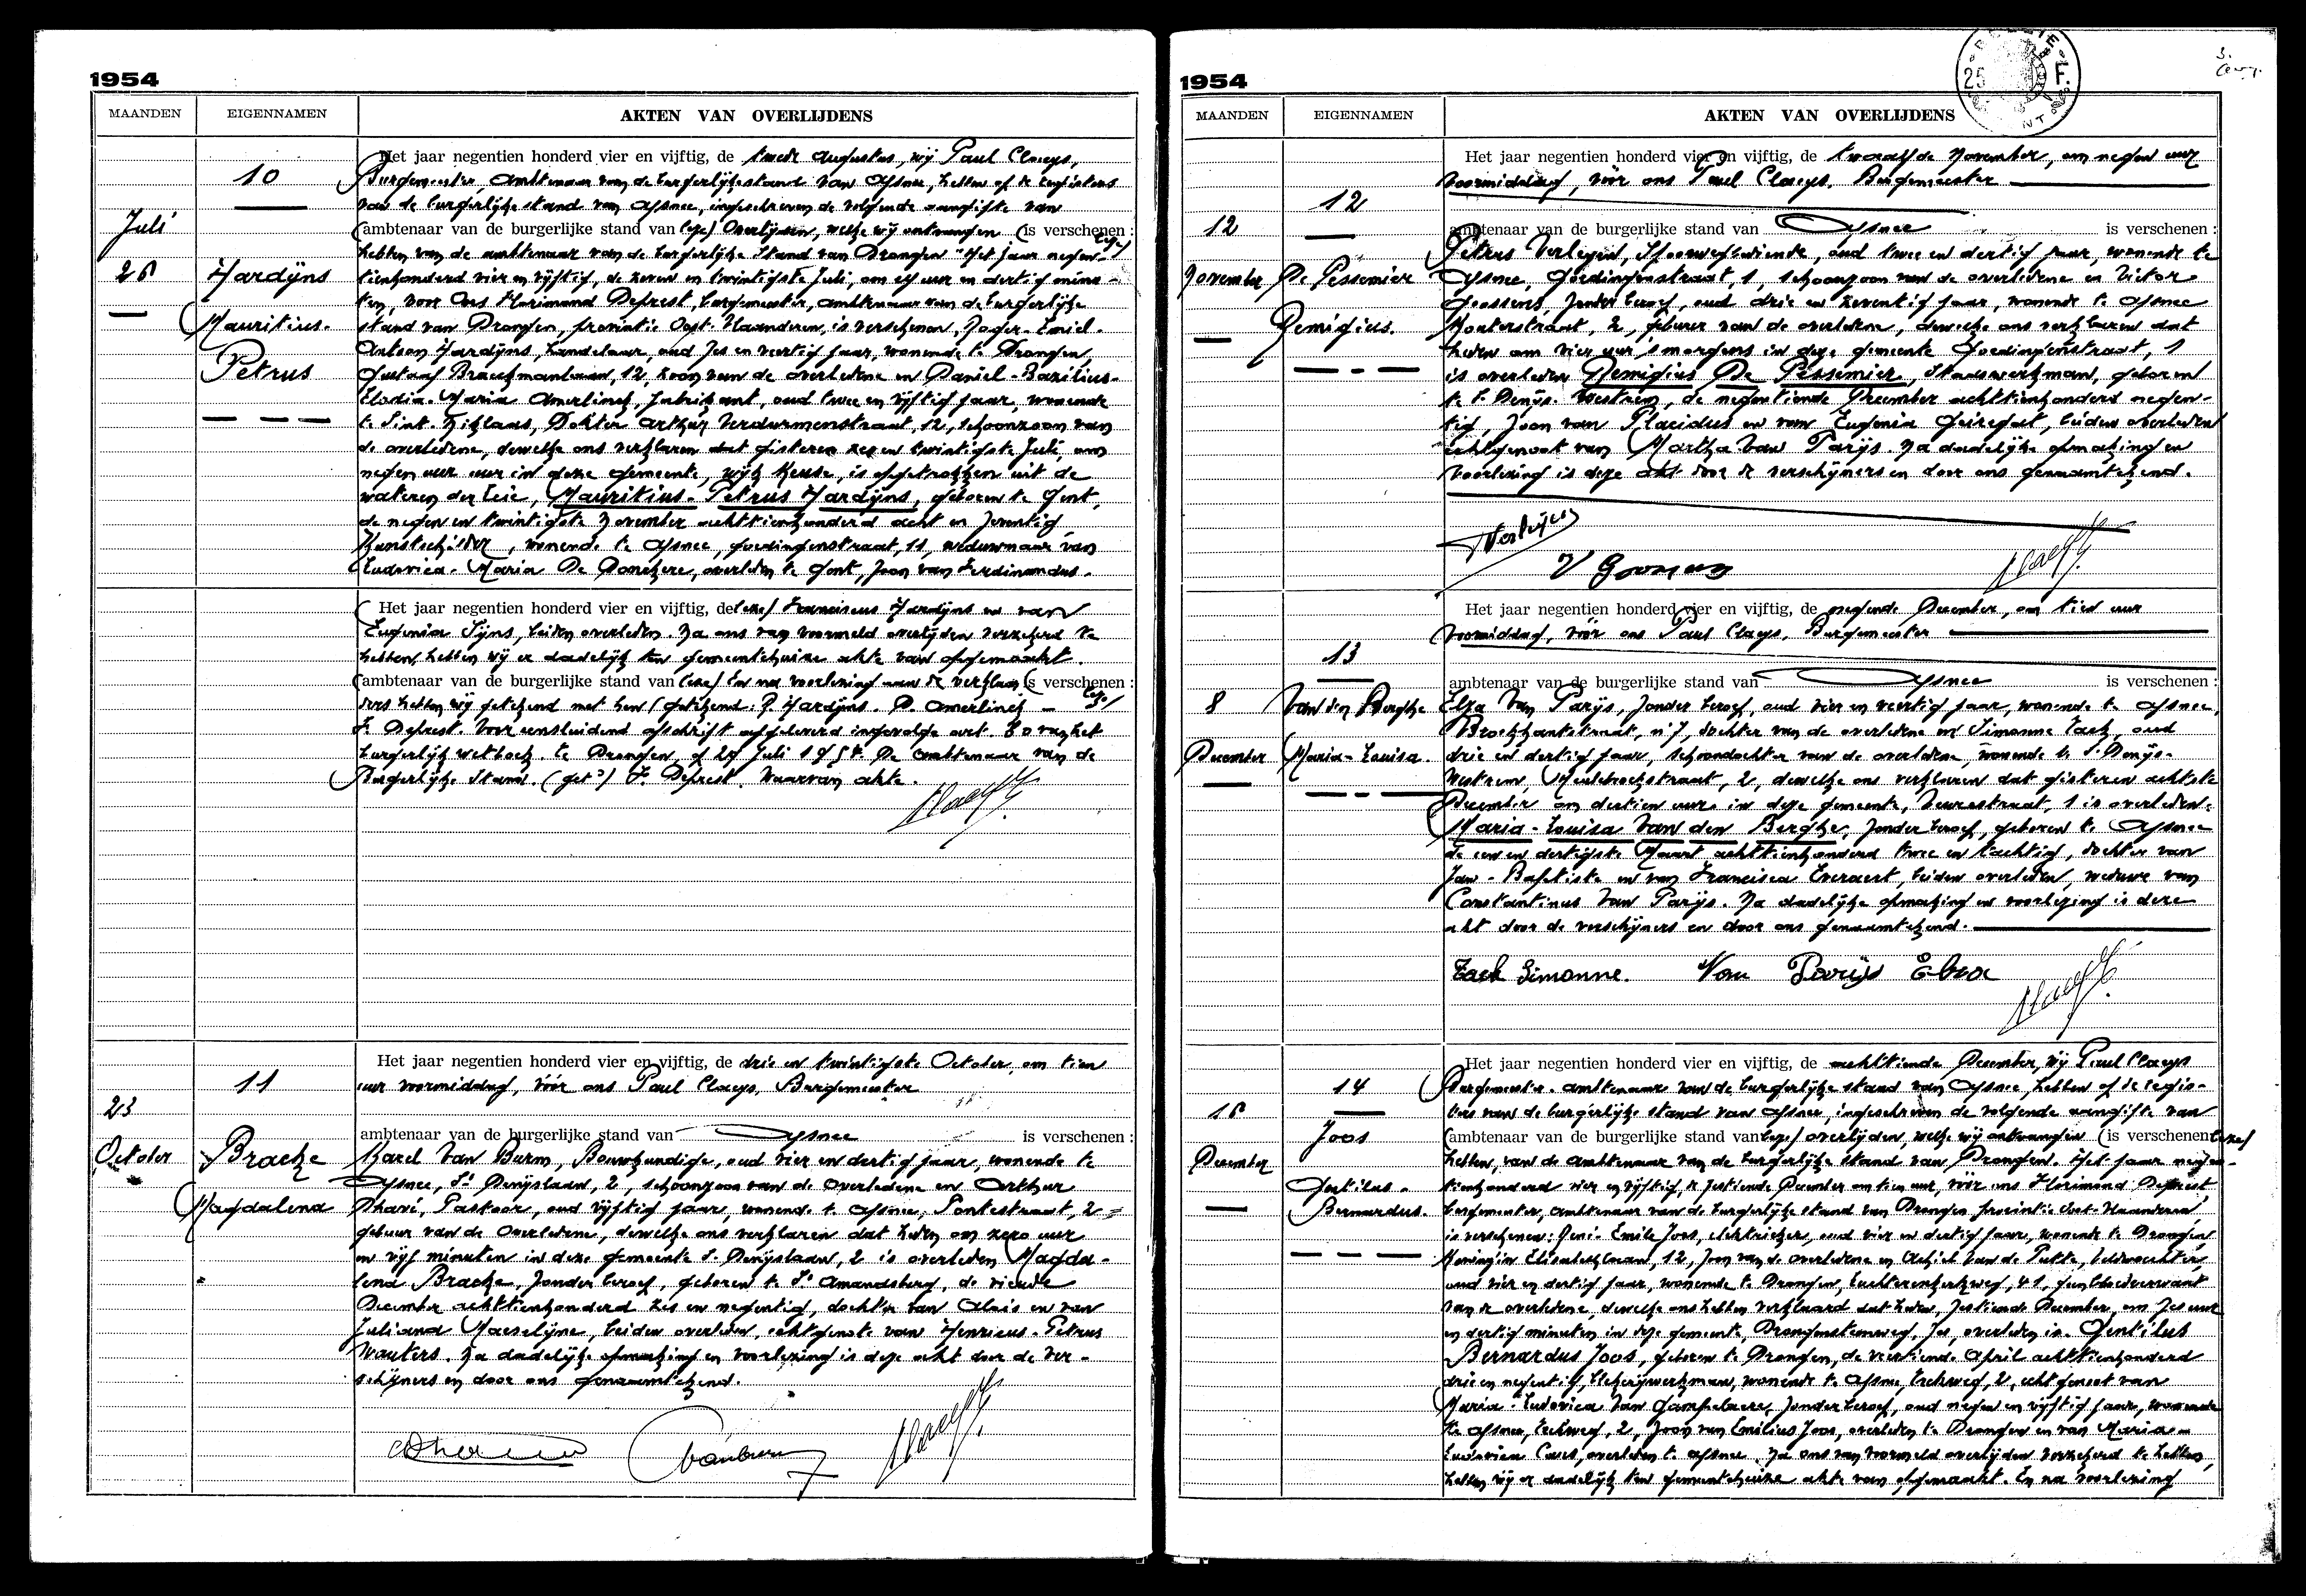 1954
MAANDEN EIGENNAMEN AKTEN VAN OVERLIJDENS
10
Juli
26
Hardÿns
Mauritius-
Petrus
Het jaar negentien honderd vier en vijftig, de twede Augustus, wij Paul Claeys,
Burgemeester, Ambtenaar van de burgerlijke stand van Afsnee, hebben op de registers
van de burgerlijke stand van Afsnee, ingeschreven de volgende aangifte van
ambtenaar van de burgerlijke stand van (lees) Overlijden, welke wij ontvangen (is verschenen : lees)
hebben van de ambtenaar van de burgerlijke stand van Drongen "Het jaar negen-
tienhonderd vier en vijftig, de zeven en twintigste Juli, om elf uur en dertig minu-
ten, voor Ons Florimond Deprest, burgemeester, ambtenaar van de burgerlijke
stand van Drongen, provintie Oost-Vlaanderen, is verschenen, Roger-Emiel-
Antoon Hardÿns, handelaar, oud zes en veertig jaar, wonende te Drongen,
Gustaaf Braeckmanlaan, 12, zoon van de overledene en Daniel-Bazilius-
Maria Amerlinck, fabrikant, oud twee en vijftig jaar, wonende
te Sint-Niklaas, Dokter Arthur Verdurmenstraat, 12, schoonzoon van
de overledene, dewelke ons verklaren dat gisteren zes en twintigste Juli, om
negen uur in deze gemeente, wijk Keuze, is opgetrokken uit de
wateren der Leie, Mauritius-Petrus Hardÿns, geboren te Gent,
de negen en twintigste November achttienhonderd acht en zeventig
Kunstschilder, wonende te Afsnee, Goedingenstraat, 11, weduwnaar van
Ludovica-Maria De Donckere, overleden te Gent, zoon van Ferdinandus-
Het jaar negentien honderd vier en vijftig, de (lees) Franciscus Hardÿns en van
Eugenia Sijns, beiden overleden. Na ons van voormeld overlijden verzekerd te
hebben, hebben wij er dadelijk ten gemeentehuize akte van opgemaakt.
ambtenaar van de burgerlijke stand van (lees) En na voorlezing aan de verklaar (is verschenen : lees)
ders hebben wij getekend met hen (getekend: R. Hardÿns. D. Amerlinck —
F. Deprest. Voor eensluidend afschrift afgeleverd ingevolge art. 80 van het
burgerlijk wetboek. te Drongen, op 29 Juli 1954. De ambtenaar van de
Burgerlijke Stand. (get.) F. Deprest. Waarvan akte.
11
23
October
Bracke
Magdalena
Het jaar negentien honderd vier en vijftig, de drie en twintigste October, om tien
uur voormiddag, vóór ons Paul Claeys, Burgemeester
ambtenaar van de burgerlijke stand van Afsnee is verschenen :
Karel Van Burm, Bouwkundige, oud vier en dertig jaar, wonende te
Afsnee, St Denijslaan, 2, schoonzoon van de overledene en Arthur
Dhavé, Pastoor, oud vijftig jaar, wonende te Afsnee, Pontestraat, 2
gebuur van de overledene, dewelke ons verklaren dat heden om zero uur
en vijf minuten in deze gemeente St Denijslaan, 2 is overleden Magda-
lena Bracke, zonder beroep, geboren te St Amandsberg, de vierde
December achttienhonderd zes en negentig, dochter van Aloïs en van
Juliana Maeseljne, beiden overleden, echtgenote van Henricus-Petrus
Wauters. Na dadelijke opmaking en voorlezing is deze akt door de ver-
schijners en door ons genaamtekend.
1954
MAANDEN EIGENNAMEN AKTEN VAN OVERLIJDENS
12
12
November
De Pessemier
Remigius.
Het jaar negentien honderd vier en vijftig, de twaalfde November, om negen uur
voormiddag, vóór ons Paul Claeys, Burgemeester
ambtenaar van de burgerlijke stand van Afsnee is verschenen :
Petrus Verleyen, Spoorwegbediende, oud twee en dertig jaar, wonende te
Afsnee, Goedingenstraat, 1, schoonzoon van de overledene en Victor
Goossens, zonder beroep, oud drie en zeventig jaar, wonende te Afsnee
Kouterstraat, 2, gebuur van de overledene, dewelke ons verklaren dat
heden om vier uur 's morgens in deze gemeente Goedingenstraat, 1
is overleden Remigius De Pessemier, Staatswerkman, geboren
te St Denijs-Westrem, de negentiende December achttienhonderd negen-
tig, zoon van Placidus en van Eugenia Geiregat, beiden overleden
echtgenoot van Martha Van Parijs. Na dadelijke opmaking en
voorlezing is deze akt door de verschijners en door ons genaamtekend.
Verleyen
V Goossens
13
8
December
Van den Berghe
Maria-Louisa.
Het jaar negentien honderd vier en vijftig, de negende December, om tien uur
voormiddag, vóór ons Paul Claeys, Burgemeester
ambtenaar van de burgerlijke stand van Afsnee is verschenen :
Elza Van Parijs, zonder beroep, oud vier en veertig jaar, wonende te Afsnee,
Broekkantstraat, n° 7, dochter van de overledene en Simonne Tack, oud
drie en dertig jaar, schoondochter van de overledene, wonende te St Denijs-
Westrem, Meulebroekstraat, 2, dewelke ons verklaren dat gisteren achtste
December om dertien uur in deze gemeente, Veurestraat, 1 is overleden
Maria-Louisa Van den Berghe, zonder beroep, geboren te Afsnee
de een en dertigste Maart achttienhonderd twee en tachtig, dochter van
Jan-Baptiste en van Francisca Everaert, beiden overleden, weduwe van
Constantinus Van Parijs. Na dadelijke opmaking en voorlezing is deze
akt door de verschijners en door ons genaamtekend.
Tack Simonne. Van Parijs Elza
14
16
December
Joos
Gentilus-
Bernardus.
Het jaar negentien honderd vier en vijftig, de achttiende December, wij Paul Claeys
Burgemeester-ambtenaar van de burgerlijke stand van Afsnee, hebben op de regis-
ters van de burgerlijke stand van Afsnee, ingeschreven de volgende aangifte van
ambtenaar van de burgerlijke stand van (lees) overlijden welke wij ontvangen (is verschenen lees)
hebben, van de ambtenaar van de burgerlijke stand van Drongen. Het jaar negen-
tienhonderd vier en vijftig, de zestiende December om tien uur, vóór ons Florimond Deprest,
burgemeester, ambtenaar van de burgerlijke stand van Drongen provintie Oost-Vlaanderen
is verschenen: René-Emile Joos, elektrieker, oud vier en dertig jaar, wonende te Drongen
Koningin Elisabethlaan, 12, zoon van de overledene en Achiel Van de Putte, veldwachter,
oud vier en dertig jaar, wonende te Drongen, Luchterenkerkweg, 41, geen bloedverwant
van de overledene, dewelke ons hebben verklaard dat heden, zestiende December, om zes uur
en dertig minuten in deze gemeente, Drongensteenweg, zes, overleden is. Gentilus
Bernardus Joos, geboren te Drongen, de veertiende April achttienhonderd
drie en negentig, blekerijwerkman, wonende te Afsnee, Trekweg, 2, echtgenoot van
Maria-Ludovica Van Gampelaere, zonder beroep, oud negen en vijftig jaar, wonende
te Afsnee, Trekweg, 2, zoon van Emilius Joos, overleden te Drongen en van Maria-
Ludovica Claes, overleden te Afsnee. Na ons van voormeld overlijden verzekerd te hebben,
hebben wij er dadelijk ten gemeentehuize akte van opgemaakt. En na voorlezing